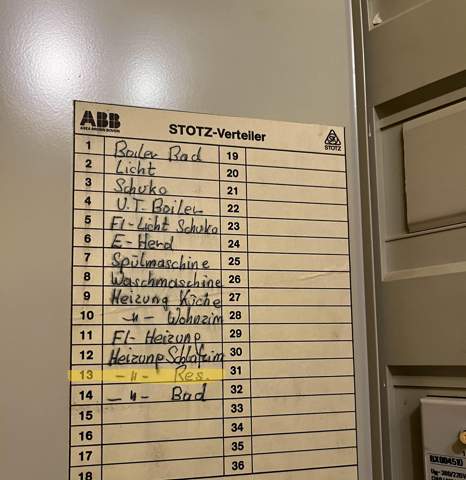 ABB
ASEA BROWN BOVERI
STOTZ-Verteiler
STOTZ
1 Boiler Bad
2 Licht
3 Schuko
4 U.T. Boiler
5 FI-Licht Schuko
6 E-Herd
7 Spülmaschine
8 Waschmaschine
9 Heizung Küche
10 -"- Wohnzim
11 FI-Heizung
12 Heizung Schlafzim
13 -"- Res.
14 -"- Bad
15
16
17
18
19
20
21
22
23
24
25
26
27
28
29
30
31
32
33
34
35
36